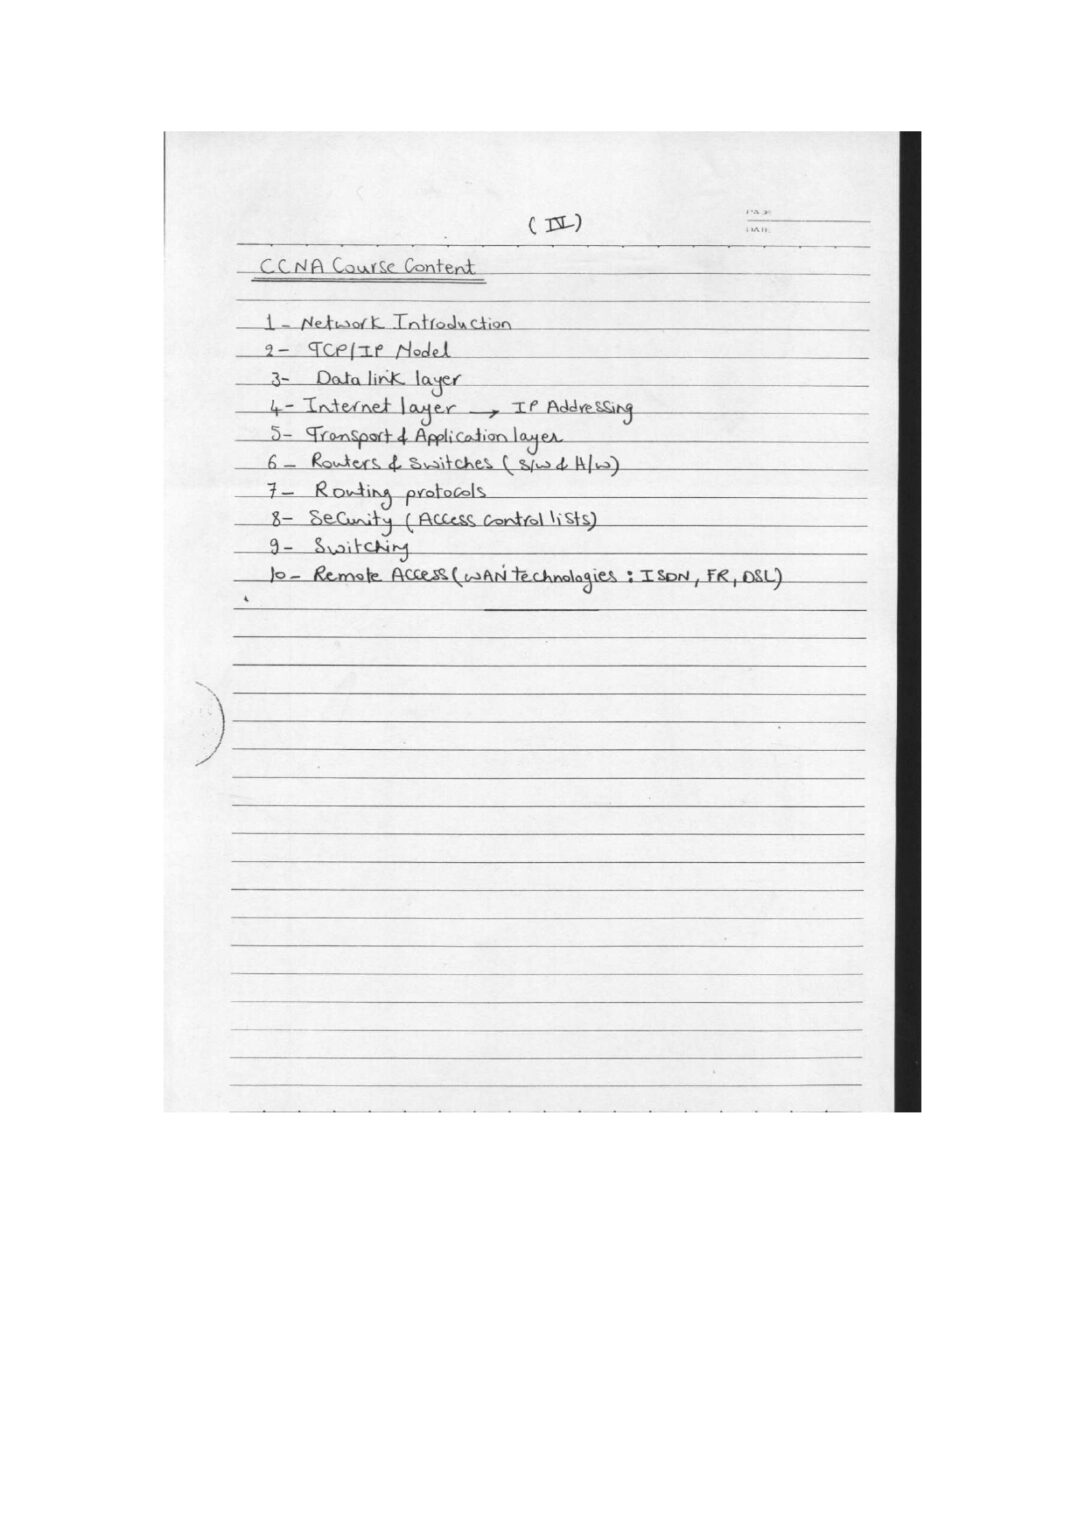 (IV)
PAGE
DATE
CCNA Course Content
1- Network Introduction
2- TCP/IP Model
3- Data link layer
4- Internet layer → IP Addressing
5- Transport & Application layer
6- Routers & Switches (S/W & H/W)
7- Routing protocols
8- Security (Access control lists)
9- Switching
10- Remote Access (WAN technologies : ISDN, FR, DSL)